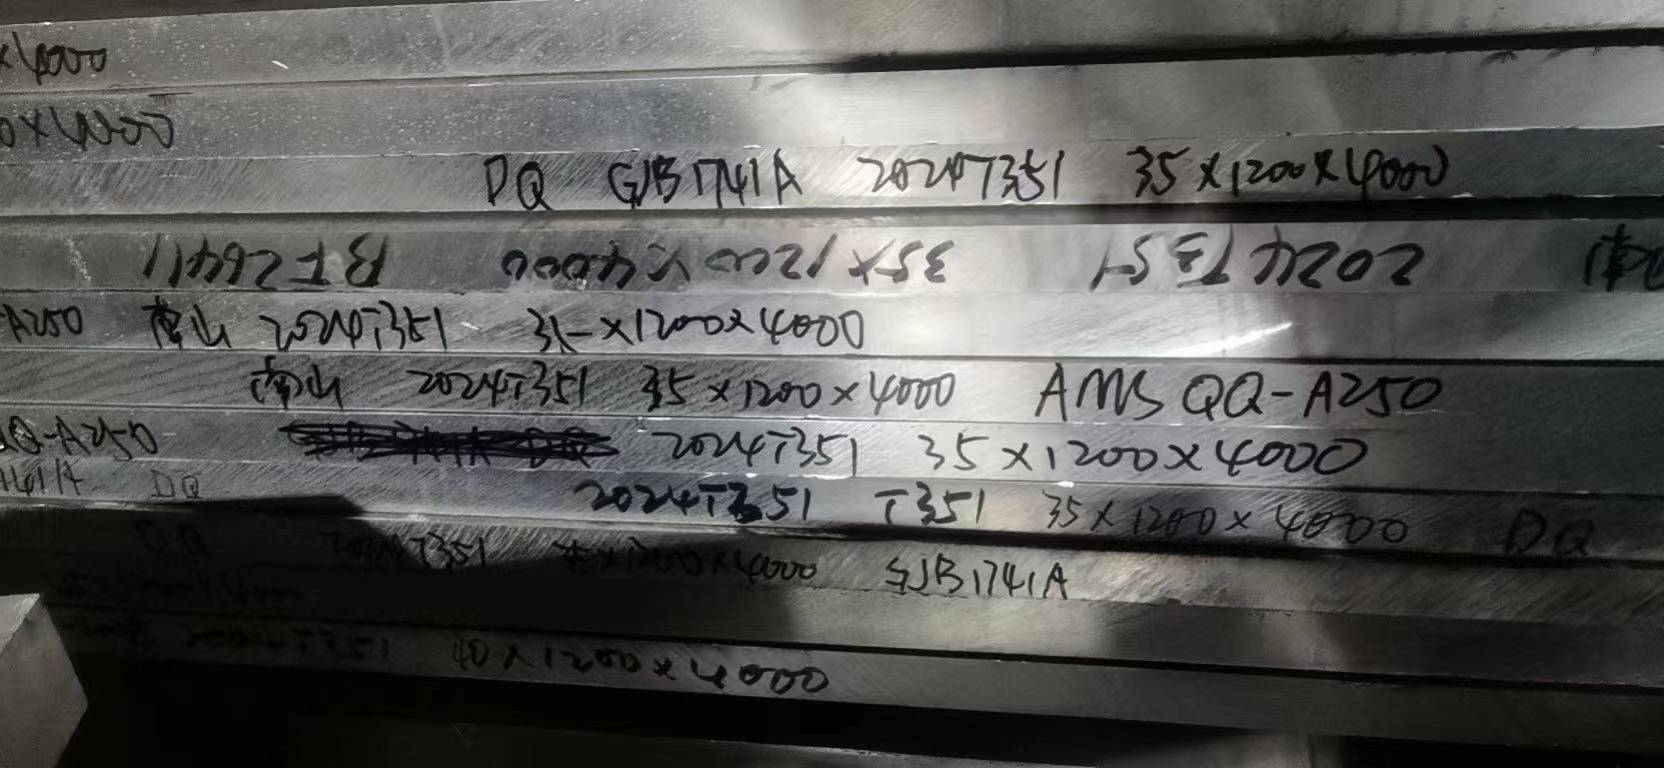 x4000
0x4000
DQ GJB1741A 2024T351 35x1200x4000
2024 T351 35x1200x4000
A250 南山 2024T351 35x1200x4000
南山 2024T351 35x1200x4000 AMS QQ-A250
QQ-A250 2024T351 35x1200x4000
1741A DQ 2024T351 T351 35x1200x4000 DQ
DQ 2024T351 35x1200x4000 GJB1741A
2024T351 40x1200x4000